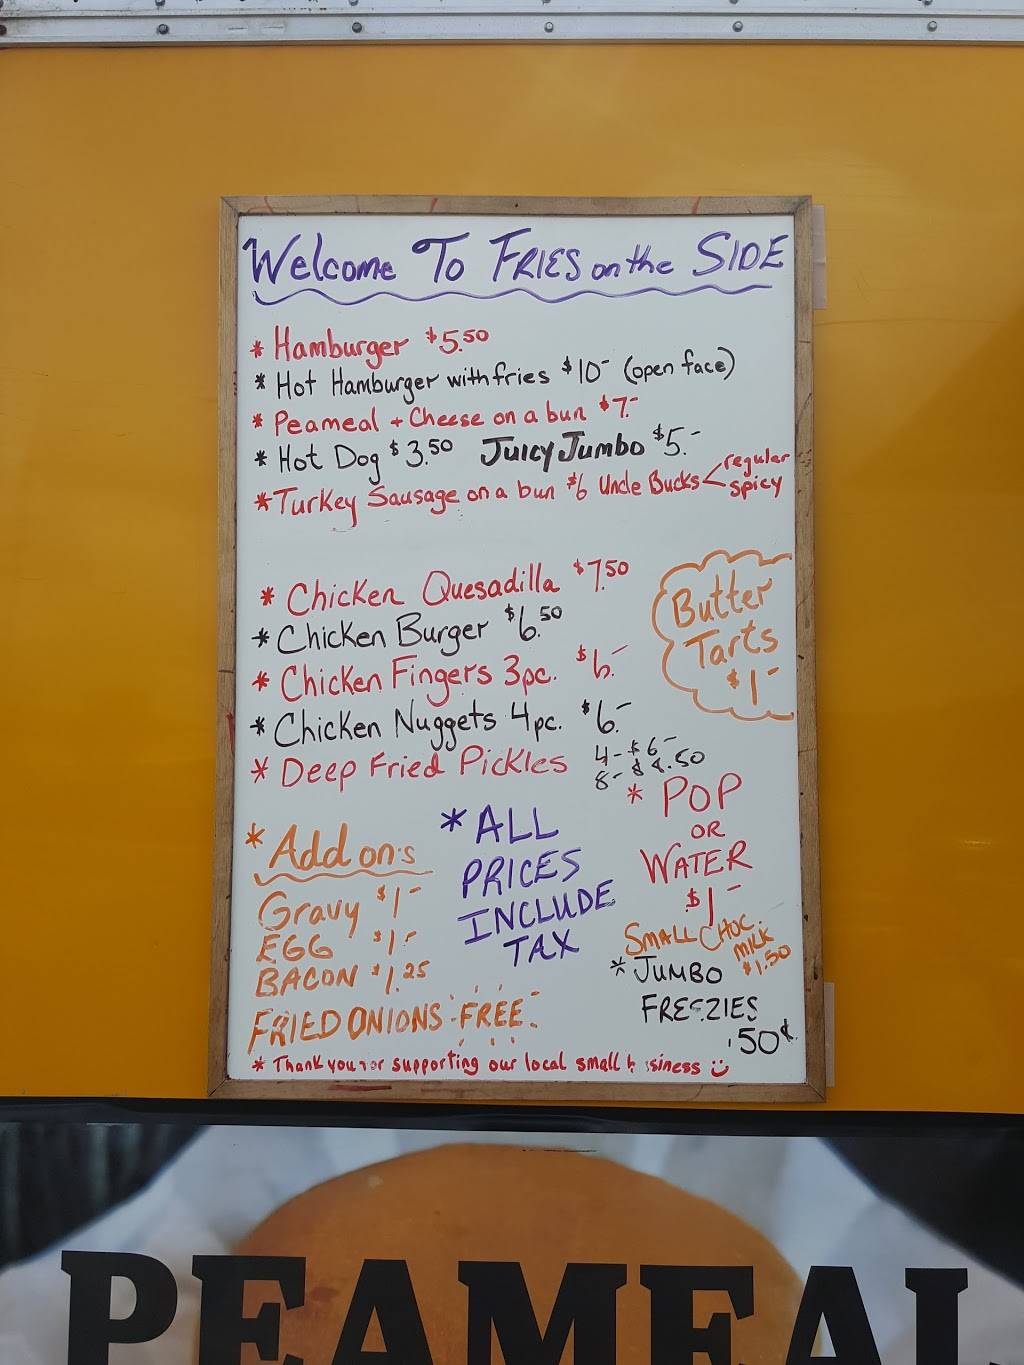 Welcome To FRIES on the SIDE
* Hamburger $5.50
* Hot Hamburger with fries $10- (open face)
* Peameal + Cheese on a bun $7.-
* Hot Dog $3.50 Juicy Jumbo $5.-
* Turkey Sausage on a bun $6 Uncle Bucks < regular
spicy
* Chicken Quesadilla $7.50
* Chicken Burger $6.50
* Chicken Fingers 3pc. $6.-
* Chicken Nuggets 4pc. $6.-
* Deep Fried Pickles 4-$6-
8-$8.50
Butter
Tarts
$1-
* Add on's
Gravy $1-
EGG $1-
BACON $1.25
FRIED ONIONS FREE
* ALL
PRICES
INCLUDE
TAX
* POP
OR
WATER
$1-
SMALL CHOC.
MILK
$1.50
* JUMBO
FREEZIES
.50¢
* Thank you for supporting our local small business
PEAMEAL